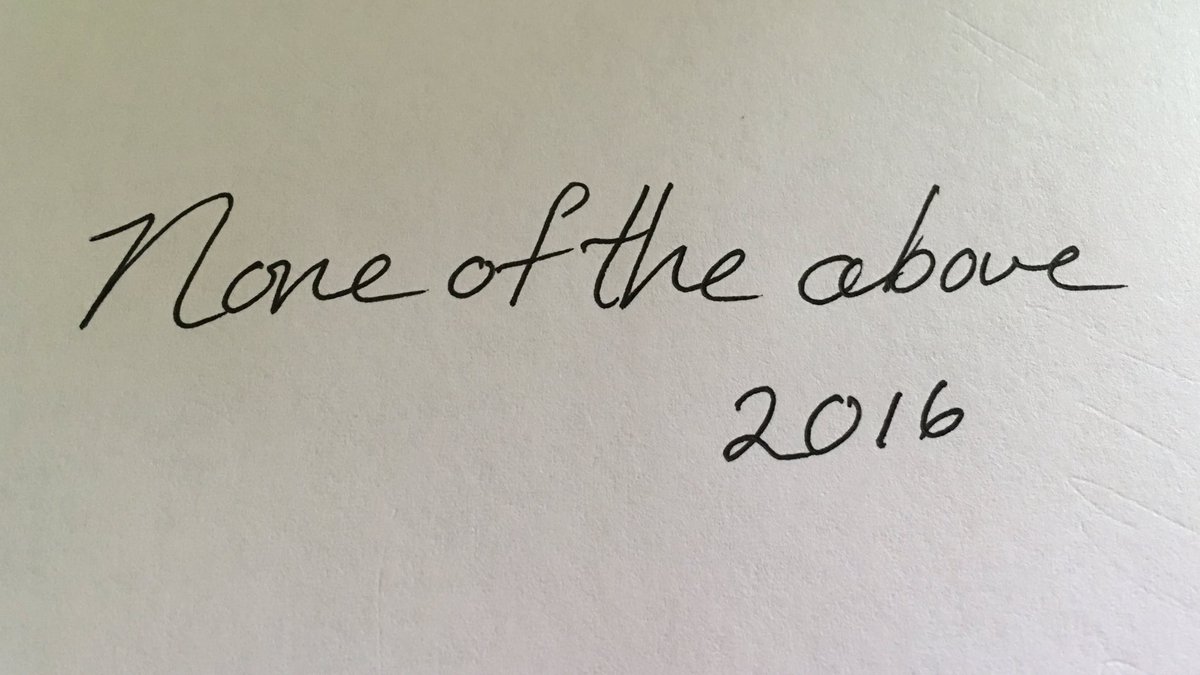 None of the above
2016